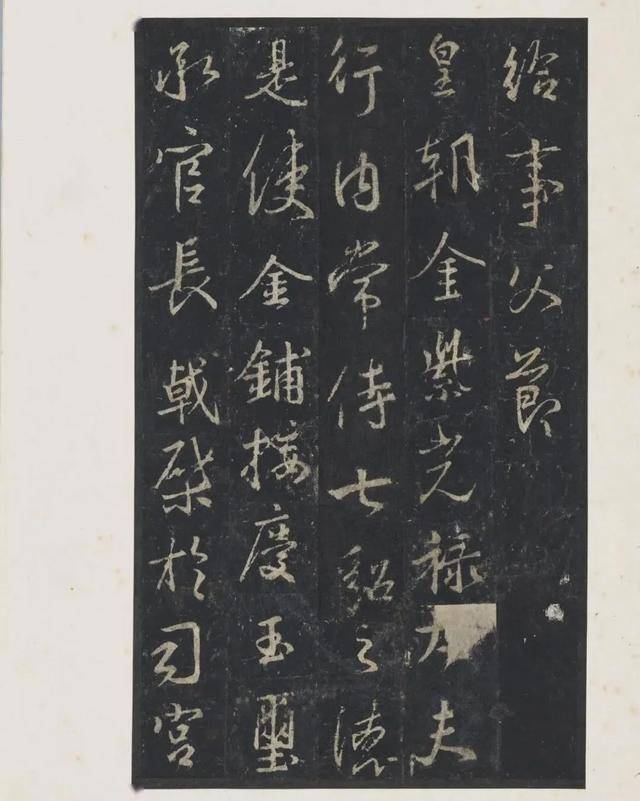 給事父節
皇朝金紫光祿大夫
行內常侍七貂之德
是使金鋪接慶玉璽
承官長戟棨於司宮